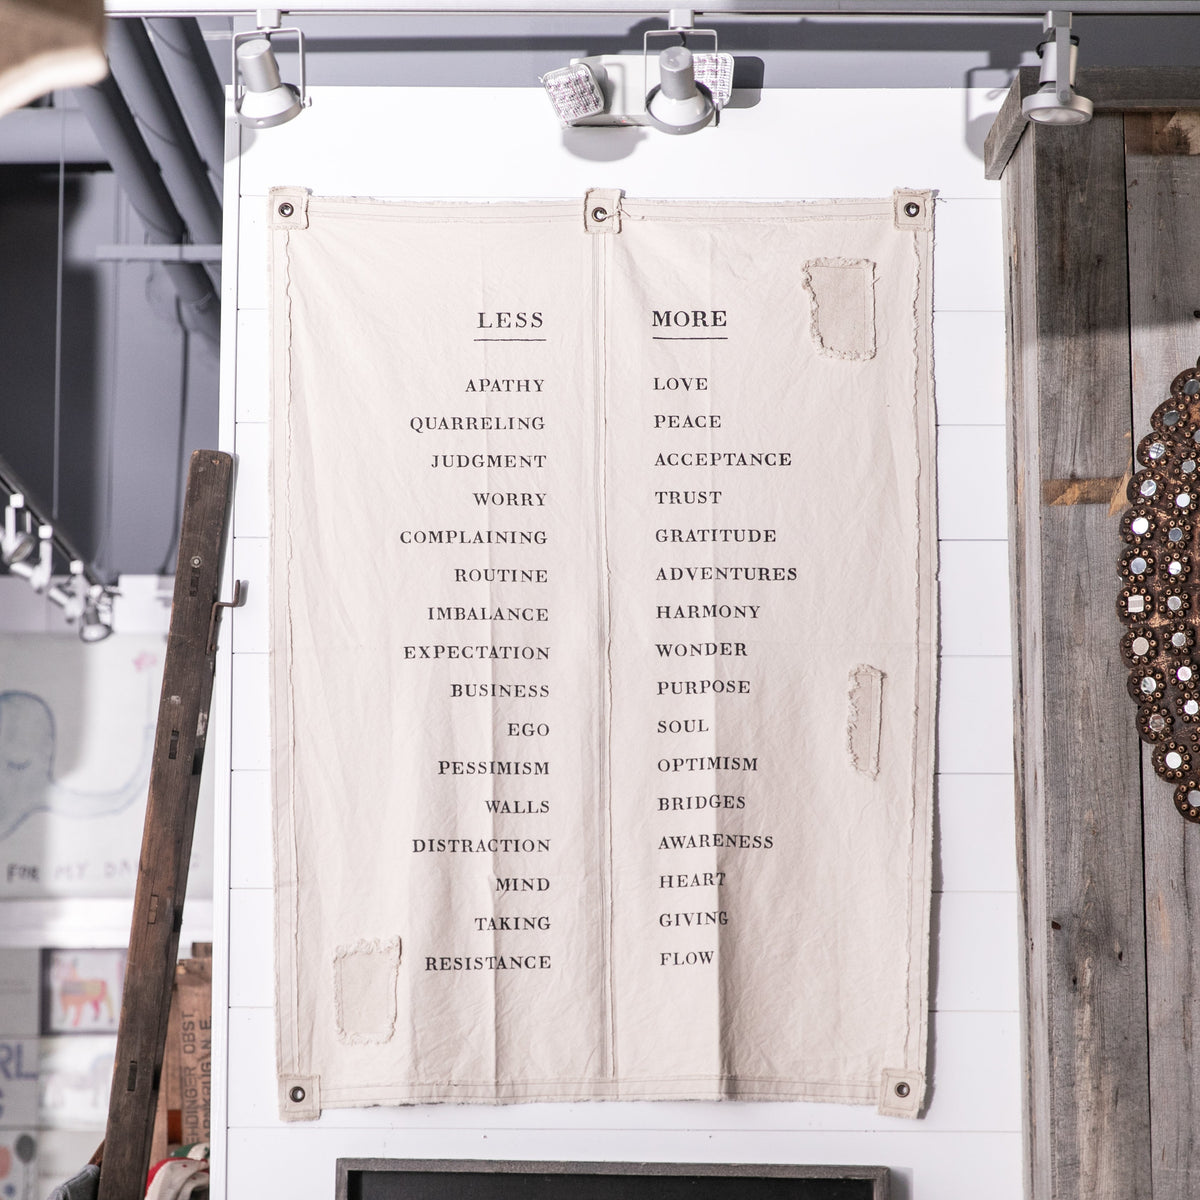 LESS MORE
APATHY LOVE
QUARRELING PEACE
JUDGMENT ACCEPTANCE
WORRY TRUST
COMPLAINING GRATITUDE
ROUTINE ADVENTURES
IMBALANCE HARMONY
EXPECTATION WONDER
BUSINESS PURPOSE
EGO SOUL
PESSIMISM OPTIMISM
WALLS BRIDGES
DISTRACTION AWARENESS
MIND HEART
TAKING GIVING
RESISTANCE FLOW
FOR MY
OBST